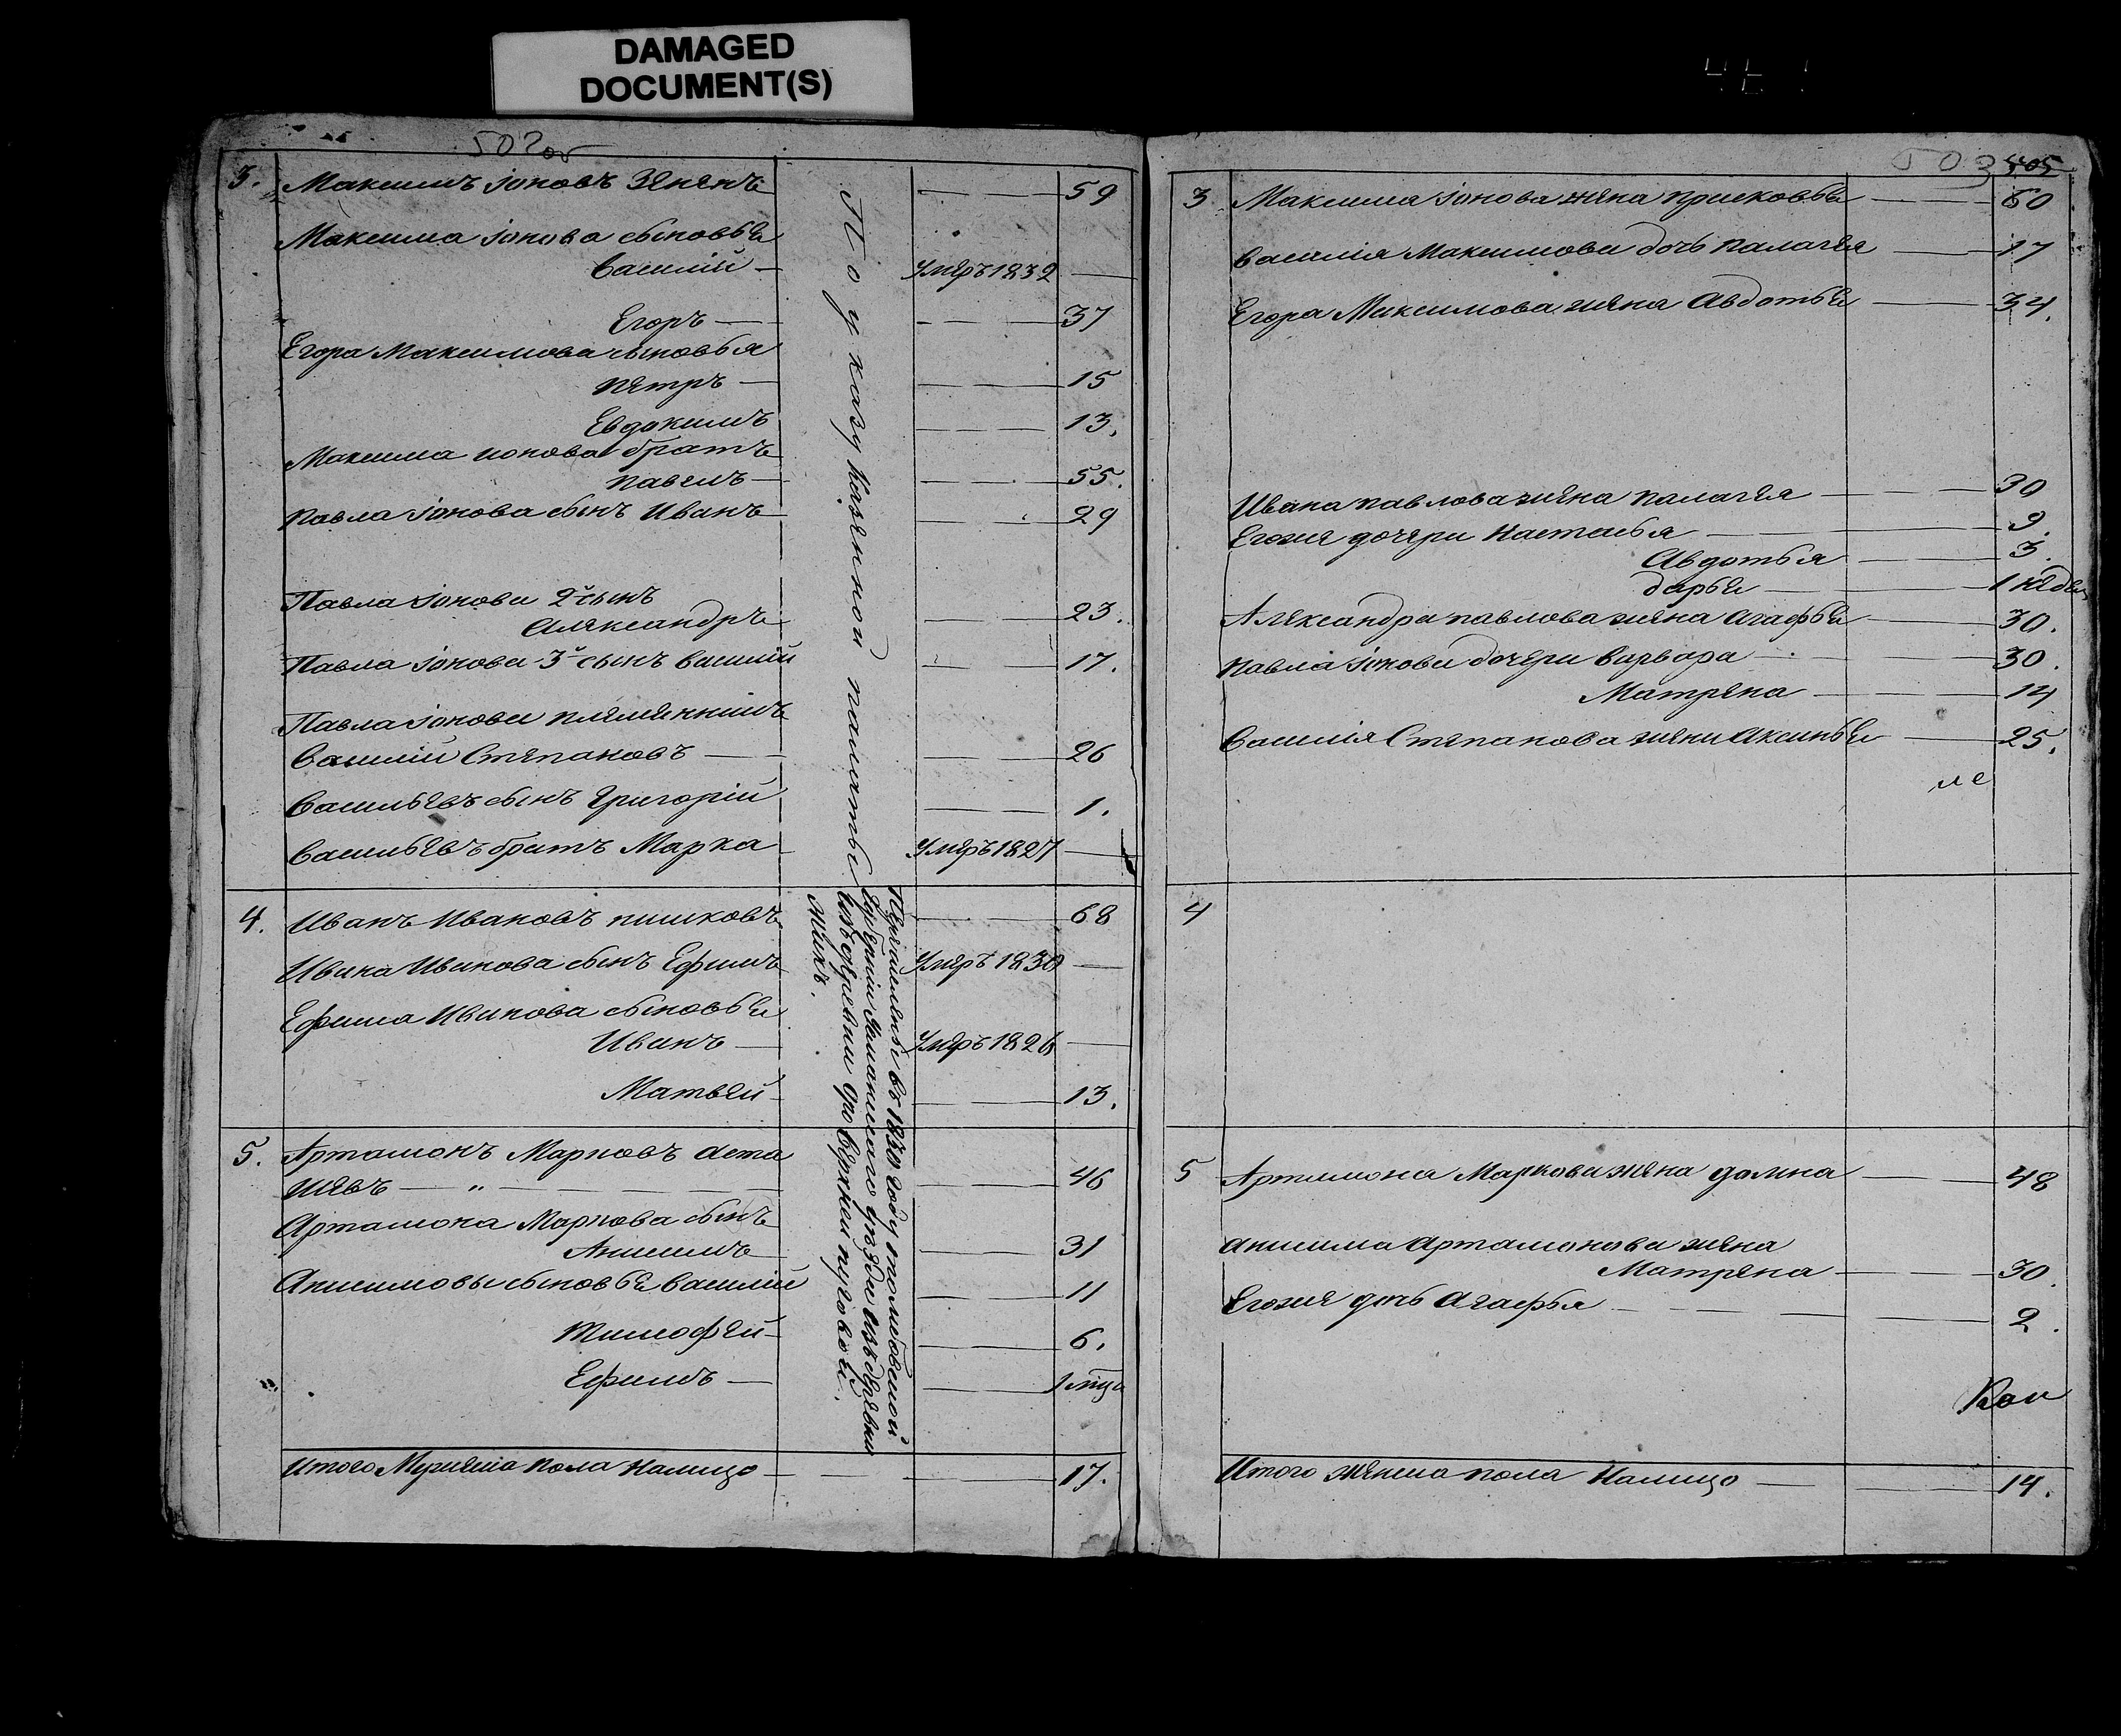 DAMAGED
DOCUMENT(S)
502об
3. Максимъ Іоновъ Зененъ — 59
Максима Іонова сыновья
Василий — Умеръ 1832 —
Егоръ — 37
Егора Максимова сыновья
Петръ — 15
Евдокимъ — 13.
Максима ионова братъ
павелъ — 55.
павла Іонова сынъ Иванъ — 29
Павла Іонова 2й сынъ
Александръ — 23.
Павла Іонова 3й сынъ василий — 17.
Павла Іонова племянникъ
Василий Степановъ — 26
Васильевъ сынъ Григорий — 1.
Васильевъ братъ Марка Умеръ 1827 —
По указу казенной палаты
4. Иванъ Ивановъ пишковъ — 68
Ивана Иванова сынъ Ефимъ Умеръ 1830 —
Ефима Иванова сыновья
Иванъ — Умеръ 1826 —
Матвей — 13.
5. Артамонъ Марковъ аста
шевъ — „ — 46
Артамона Маркова сынъ
Анисимъ — 31
Анисимовы сыновья василий — 11
тимофей — 6.
Ефимъ — 1 мца
въ 1830 году
Итого Мужеска пола налицо — 17.
503 505
3 Максима Іонова жена присковья — 60
василия Максимова дочь палагея — 17
Егора Максимова жена Авдотья — 34.
Ивана павлова жена палагея — 30
Егожа дочери настасья — 9.
Авдотья — 3.
дарья — 1 недел
Александра павлова жена агафья — 30.
павла Іонова дочери варвара — 30.
Матрена — 14
Василия Степанова жена аксинья — 25.
4
5 Артамона Маркова жена домна — 48
анисима артамонова жена
Матрена — 30.
Егожа дочь агафья — 2.
Итого женска пола налицо — 14.